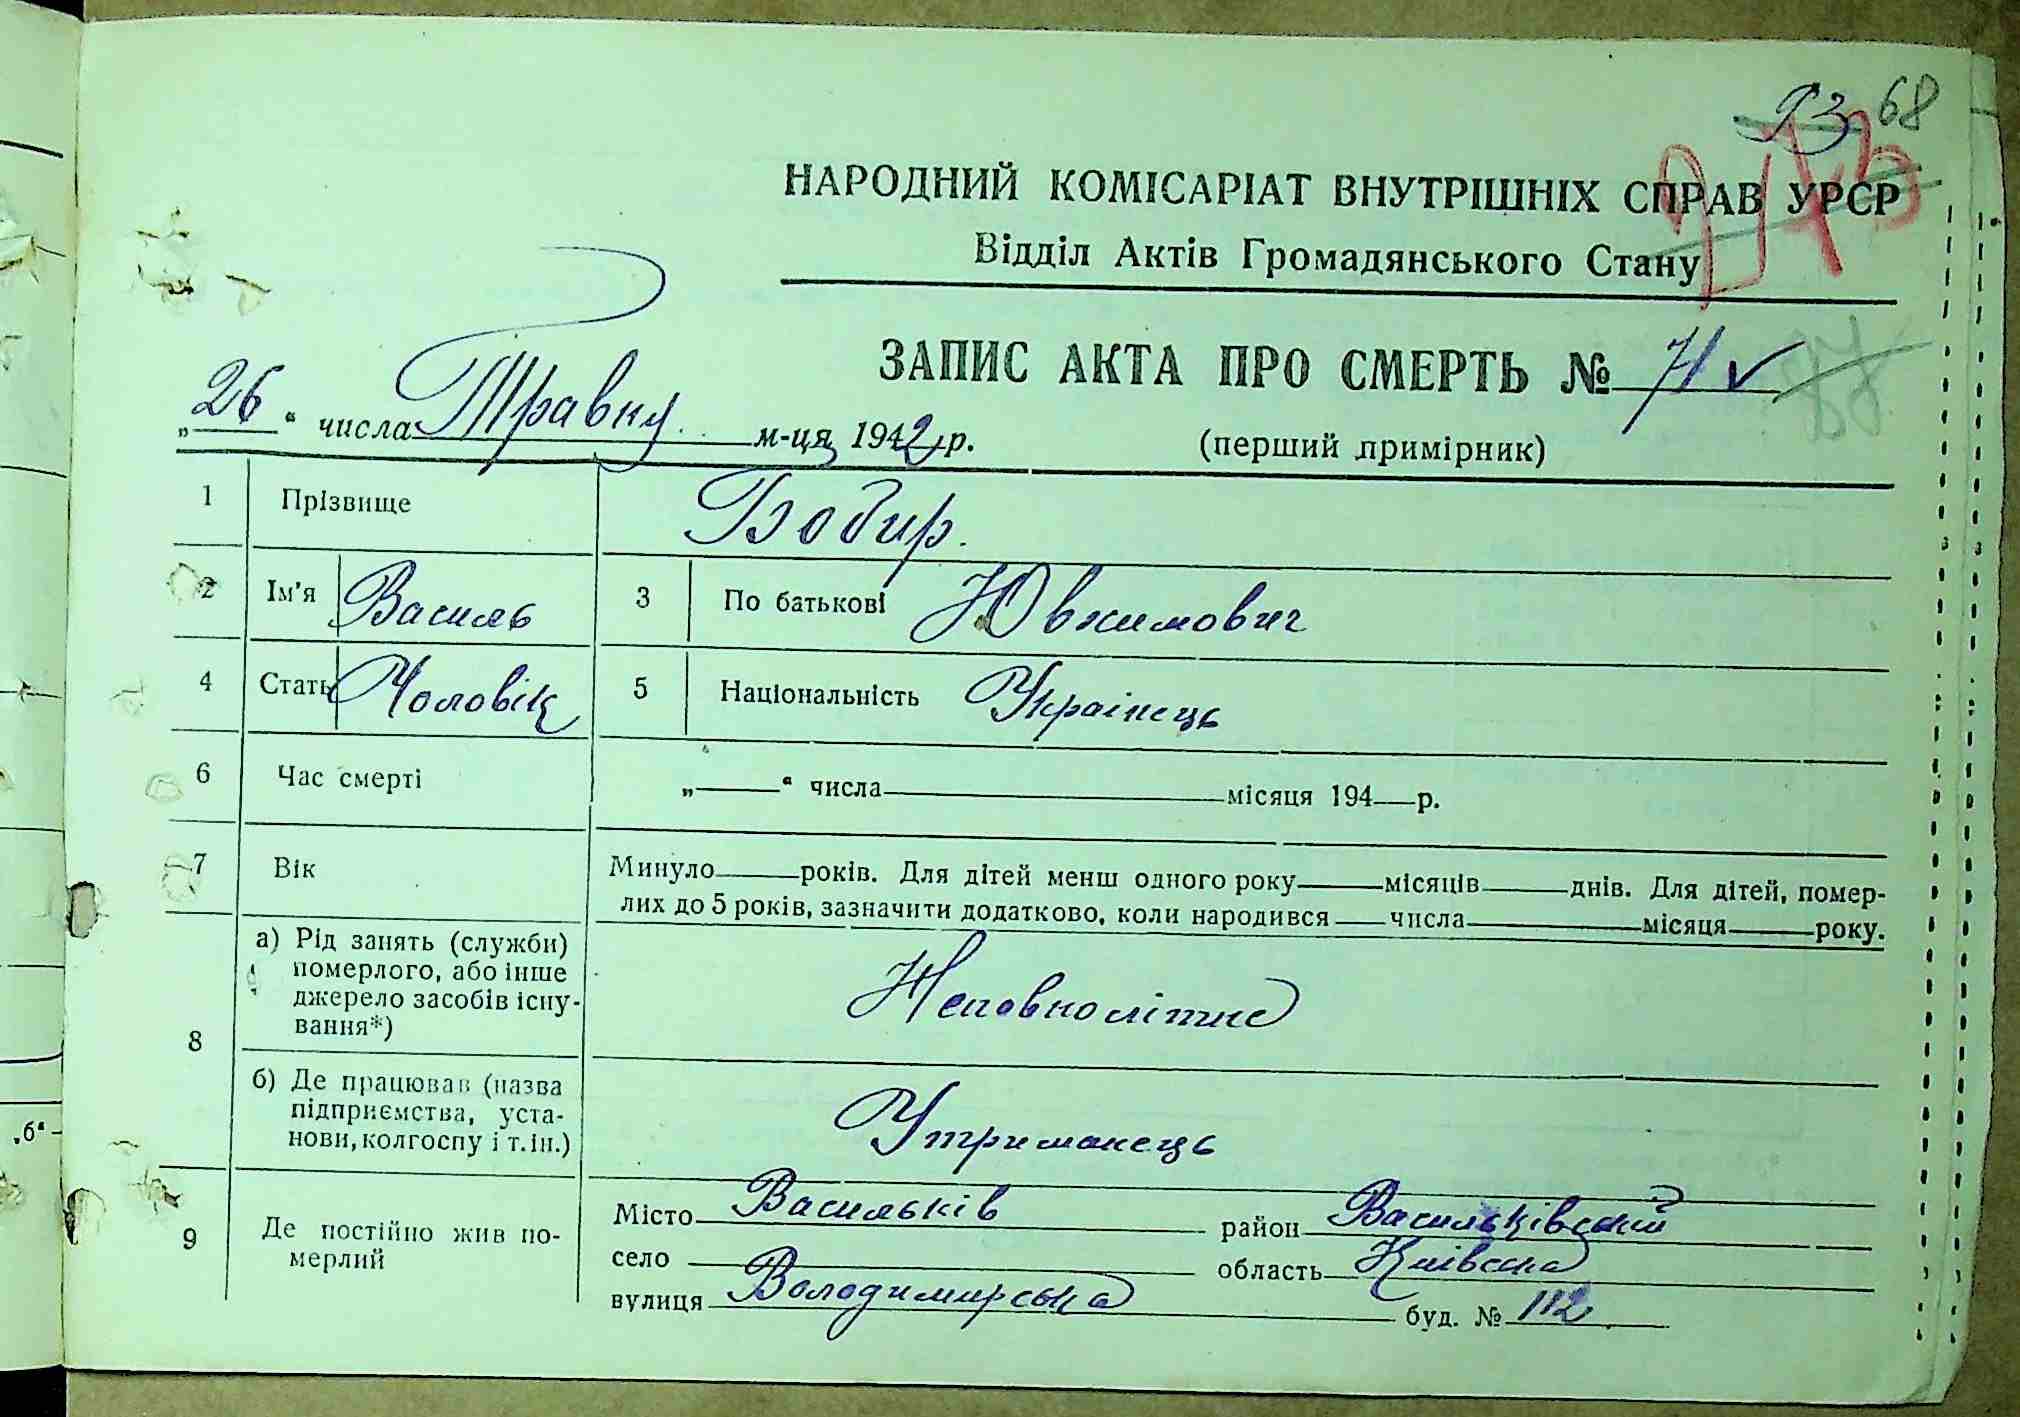 93 68
НАРОДНИЙ КОМІСАРІАТ ВНУТРІШНІХ СПРАВ УРСР
Відділ Актів Громадянського Стану
ЗАПИС АКТА ПРО СМЕРТЬ № 71
„26“ числа Травня м-ця 1942 р. (перший примірник)
1 Прізвище Бобир.
2 Ім'я Василь 3 По батькові Юхимович
4 Стать Чоловік 5 Національність Українець
6 Час смерті „ “ числа місяця 194 р.
7 Вік Минуло років. Для дітей менш одного року місяців днів. Для дітей, помер-
лих до 5 років, зазначити додатково, коли народився числа місяця року.
8 а) Рід занять (служби)
померлого, або інше
джерело засобів існу-
вання*) Неповнолітнє
б) Де працював (назва
підприємства, уста-
нови, колгоспу і т. ін.) Утриманець
9 Де постійно жив по-
мерлий
Місто Васильків район Васильківський
село область Київська
вулиця Володимирська буд. № 112
„б“